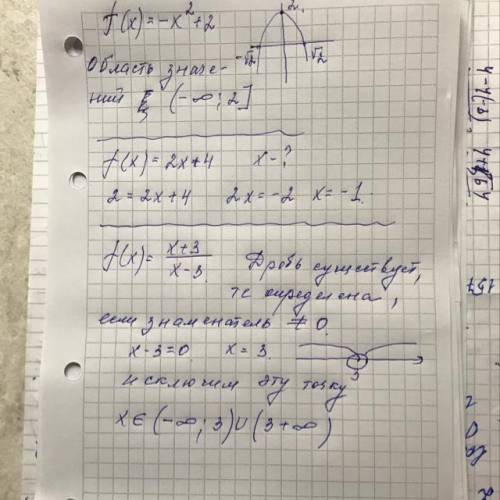 f(x)=-x²+2
2
-√2 √2
Область значе-
ний E (-∞; 2]
f(x)=2x+4 x-?
2=2x+4 2x=-2 x=-1.
f(x)= x+3 / x-3 Дробь существует,
те определена,
если знаменатель ≠ 0.
x-3=0 x=3.
3
исключим эту точку
x∈(-∞; 3)∪(3+∞)
157